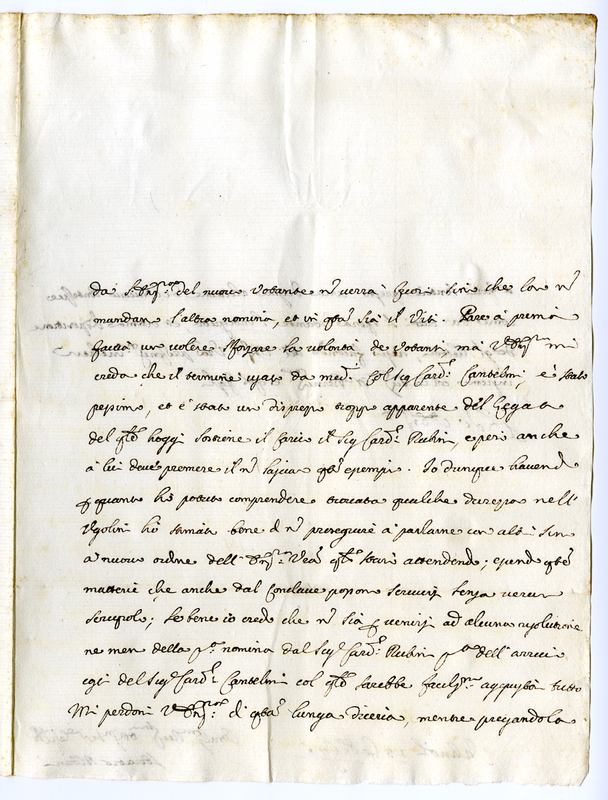 da S. Em.za del nuovo votante nō verrà fuori sin che loro nō
mandan l'altra nomina, et in qta sia il Viti. Pare a prima
faccia un volere sforzare la volontà de Votanti, ma V. Em.za mi
creda che il termine usato da med.i col Sig Card.l Cantelmi, è stato
pessimo, et è stato un disprezzo troppo apparente del Legato
del qle hoggi sostiene il carico il Sig Card.l Rubini, e però anche
a lui deve premere il nō lasciar qti esempi. Io dunque havendo
p quanto hò potuto comprendere trovata qualche durezza nell'
Ugolini hò stimato bene di nō proseguire à parlarne con altri sin
a nuovo ordine dell' Em.za Vra qle starò attendendo; essendo qte
matterie che anche dal Conclave posson scriversi senza verun
scrupolo; se bene io credo che nō sia p venirsi ad alcuna risolutione
ne men della pa nomina dal Sig.r Card.l Rubini pa dell' arrivo
costì del Sig.r Card.l Cantelmi col qle sarebbe facilm.te aggiustato tutto
Mi perdoni V. Em.za di qta lunga diceria, mentre pregandola